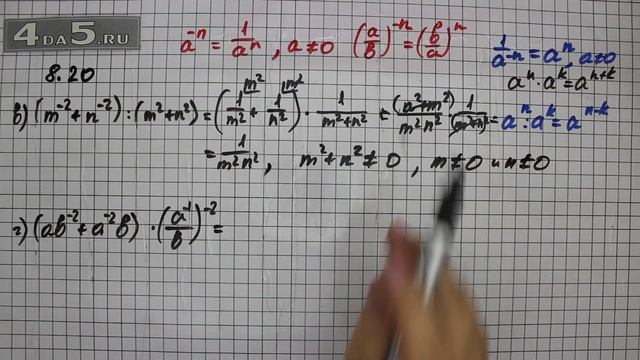 4DA5.RU
a^{-n} = 1/a^n , a≠0 (a/b)^{-n} = (b/a)^n
1/a^{-n} = a^n, a≠0
8.20
a^n · a^k = a^{n+k}
в) (m^{-2} + n^{-2}) : (m^2 + n^2) = (1/m^2 + 1/n^2) · 1/(m^2 + n^2) = (n^2 + m^2)/(m^2 n^2) · 1/(m^2 + n^2) =
a^n : a^k = a^{n-k}
= 1/(m^2 n^2) , m^2 + n^2 ≠ 0 , m ≠ 0 и n ≠ 0
г) (ab^{-2} + a^{-2}b) · (a^{-1}/b)^{-2} =